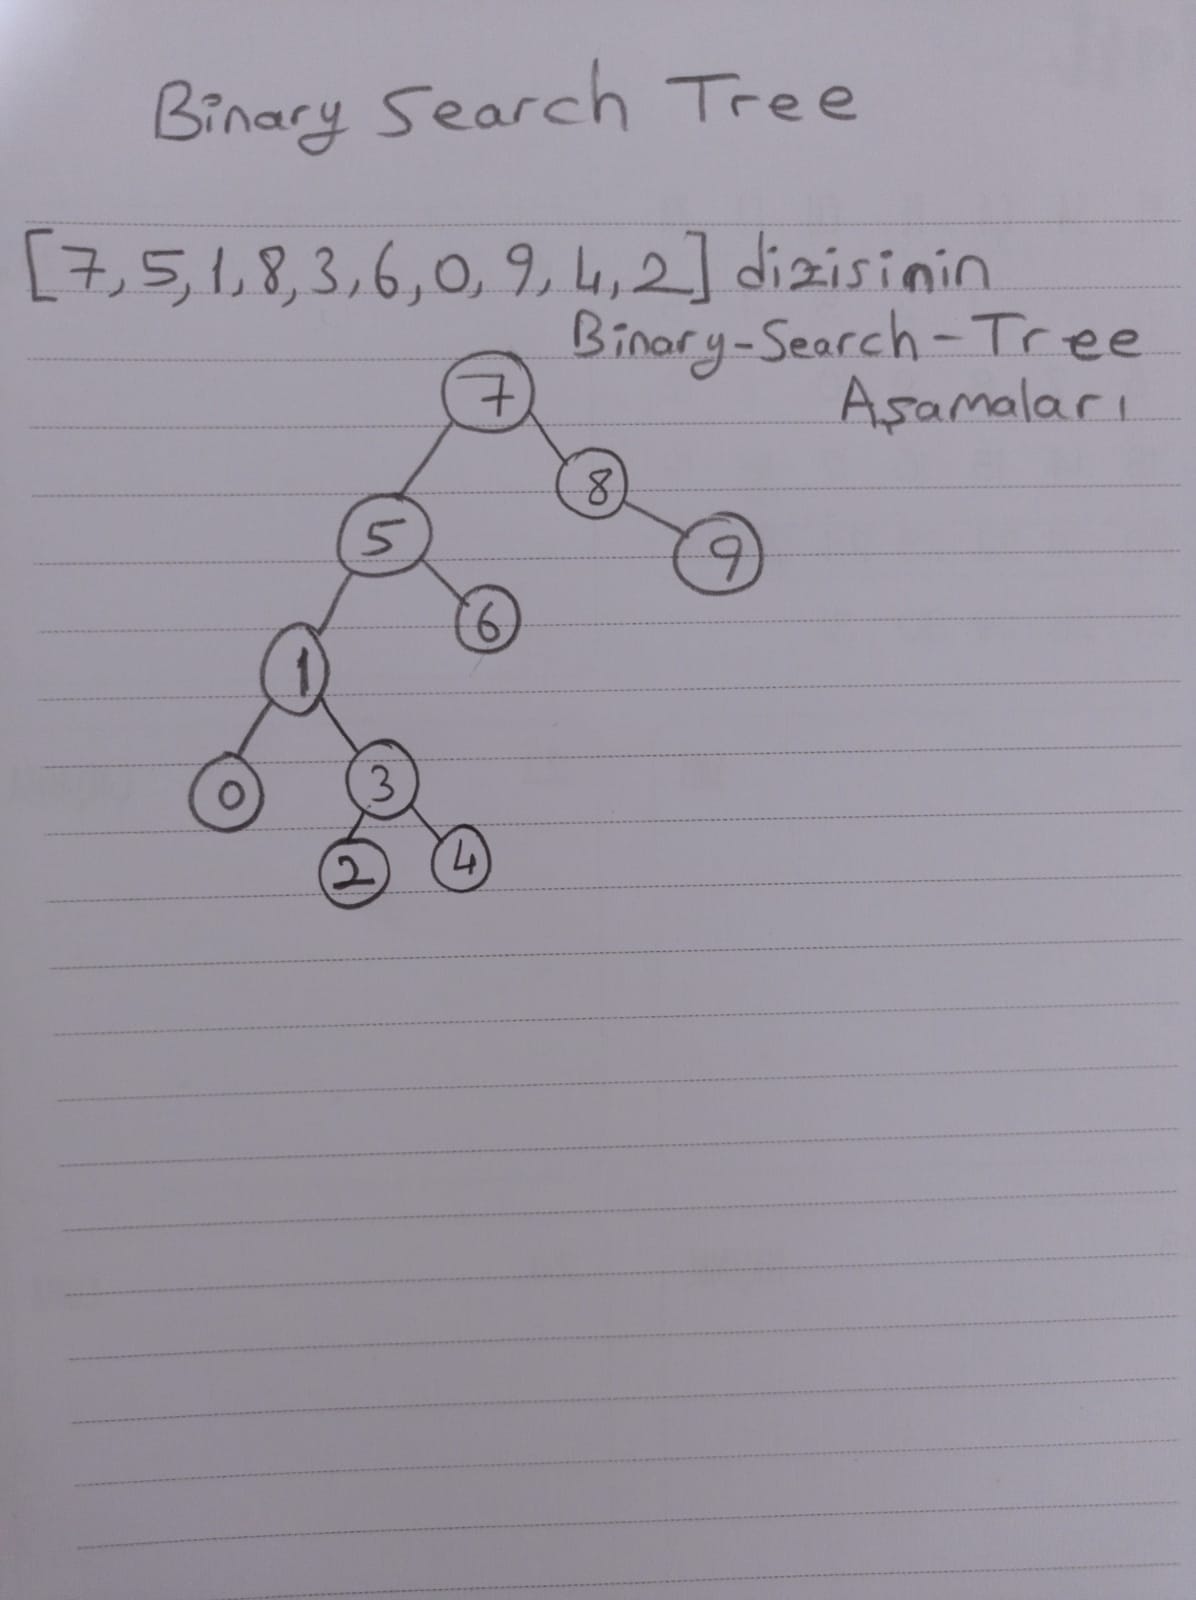 Binary Search Tree
[7,5,1,8,3,6,0,9,4,2] dizisinin
Binary-Search-Tree
Aşamaları
7
8
5
9
6
1
0
3
2
4